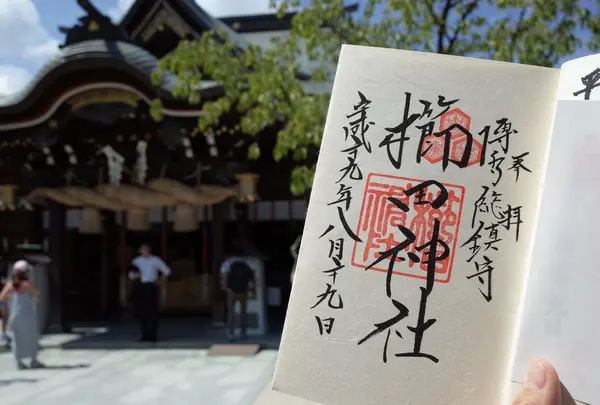 奉拝
博多総鎮守
櫛田神社
平成二九年八月十九日
平